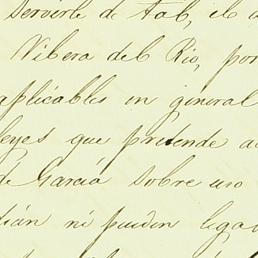 servirle de tal, el a
Vibera del Rio, por
aplicables en general
leyes que pretende a
de García sobre uso
dián ni pueden liga